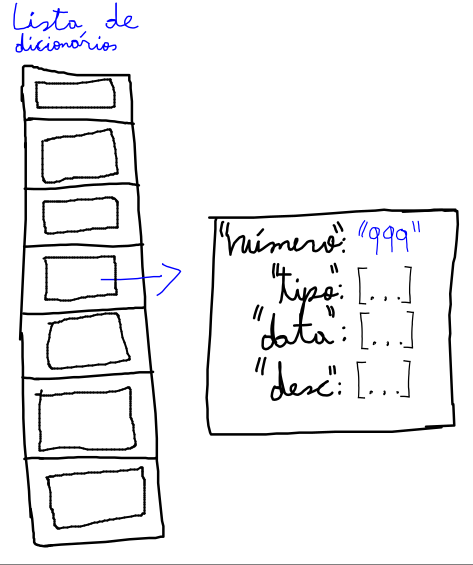 Lista de
dicionários
"número": "999"
"tipo": [...]
"data": [...]
"desc": [...]